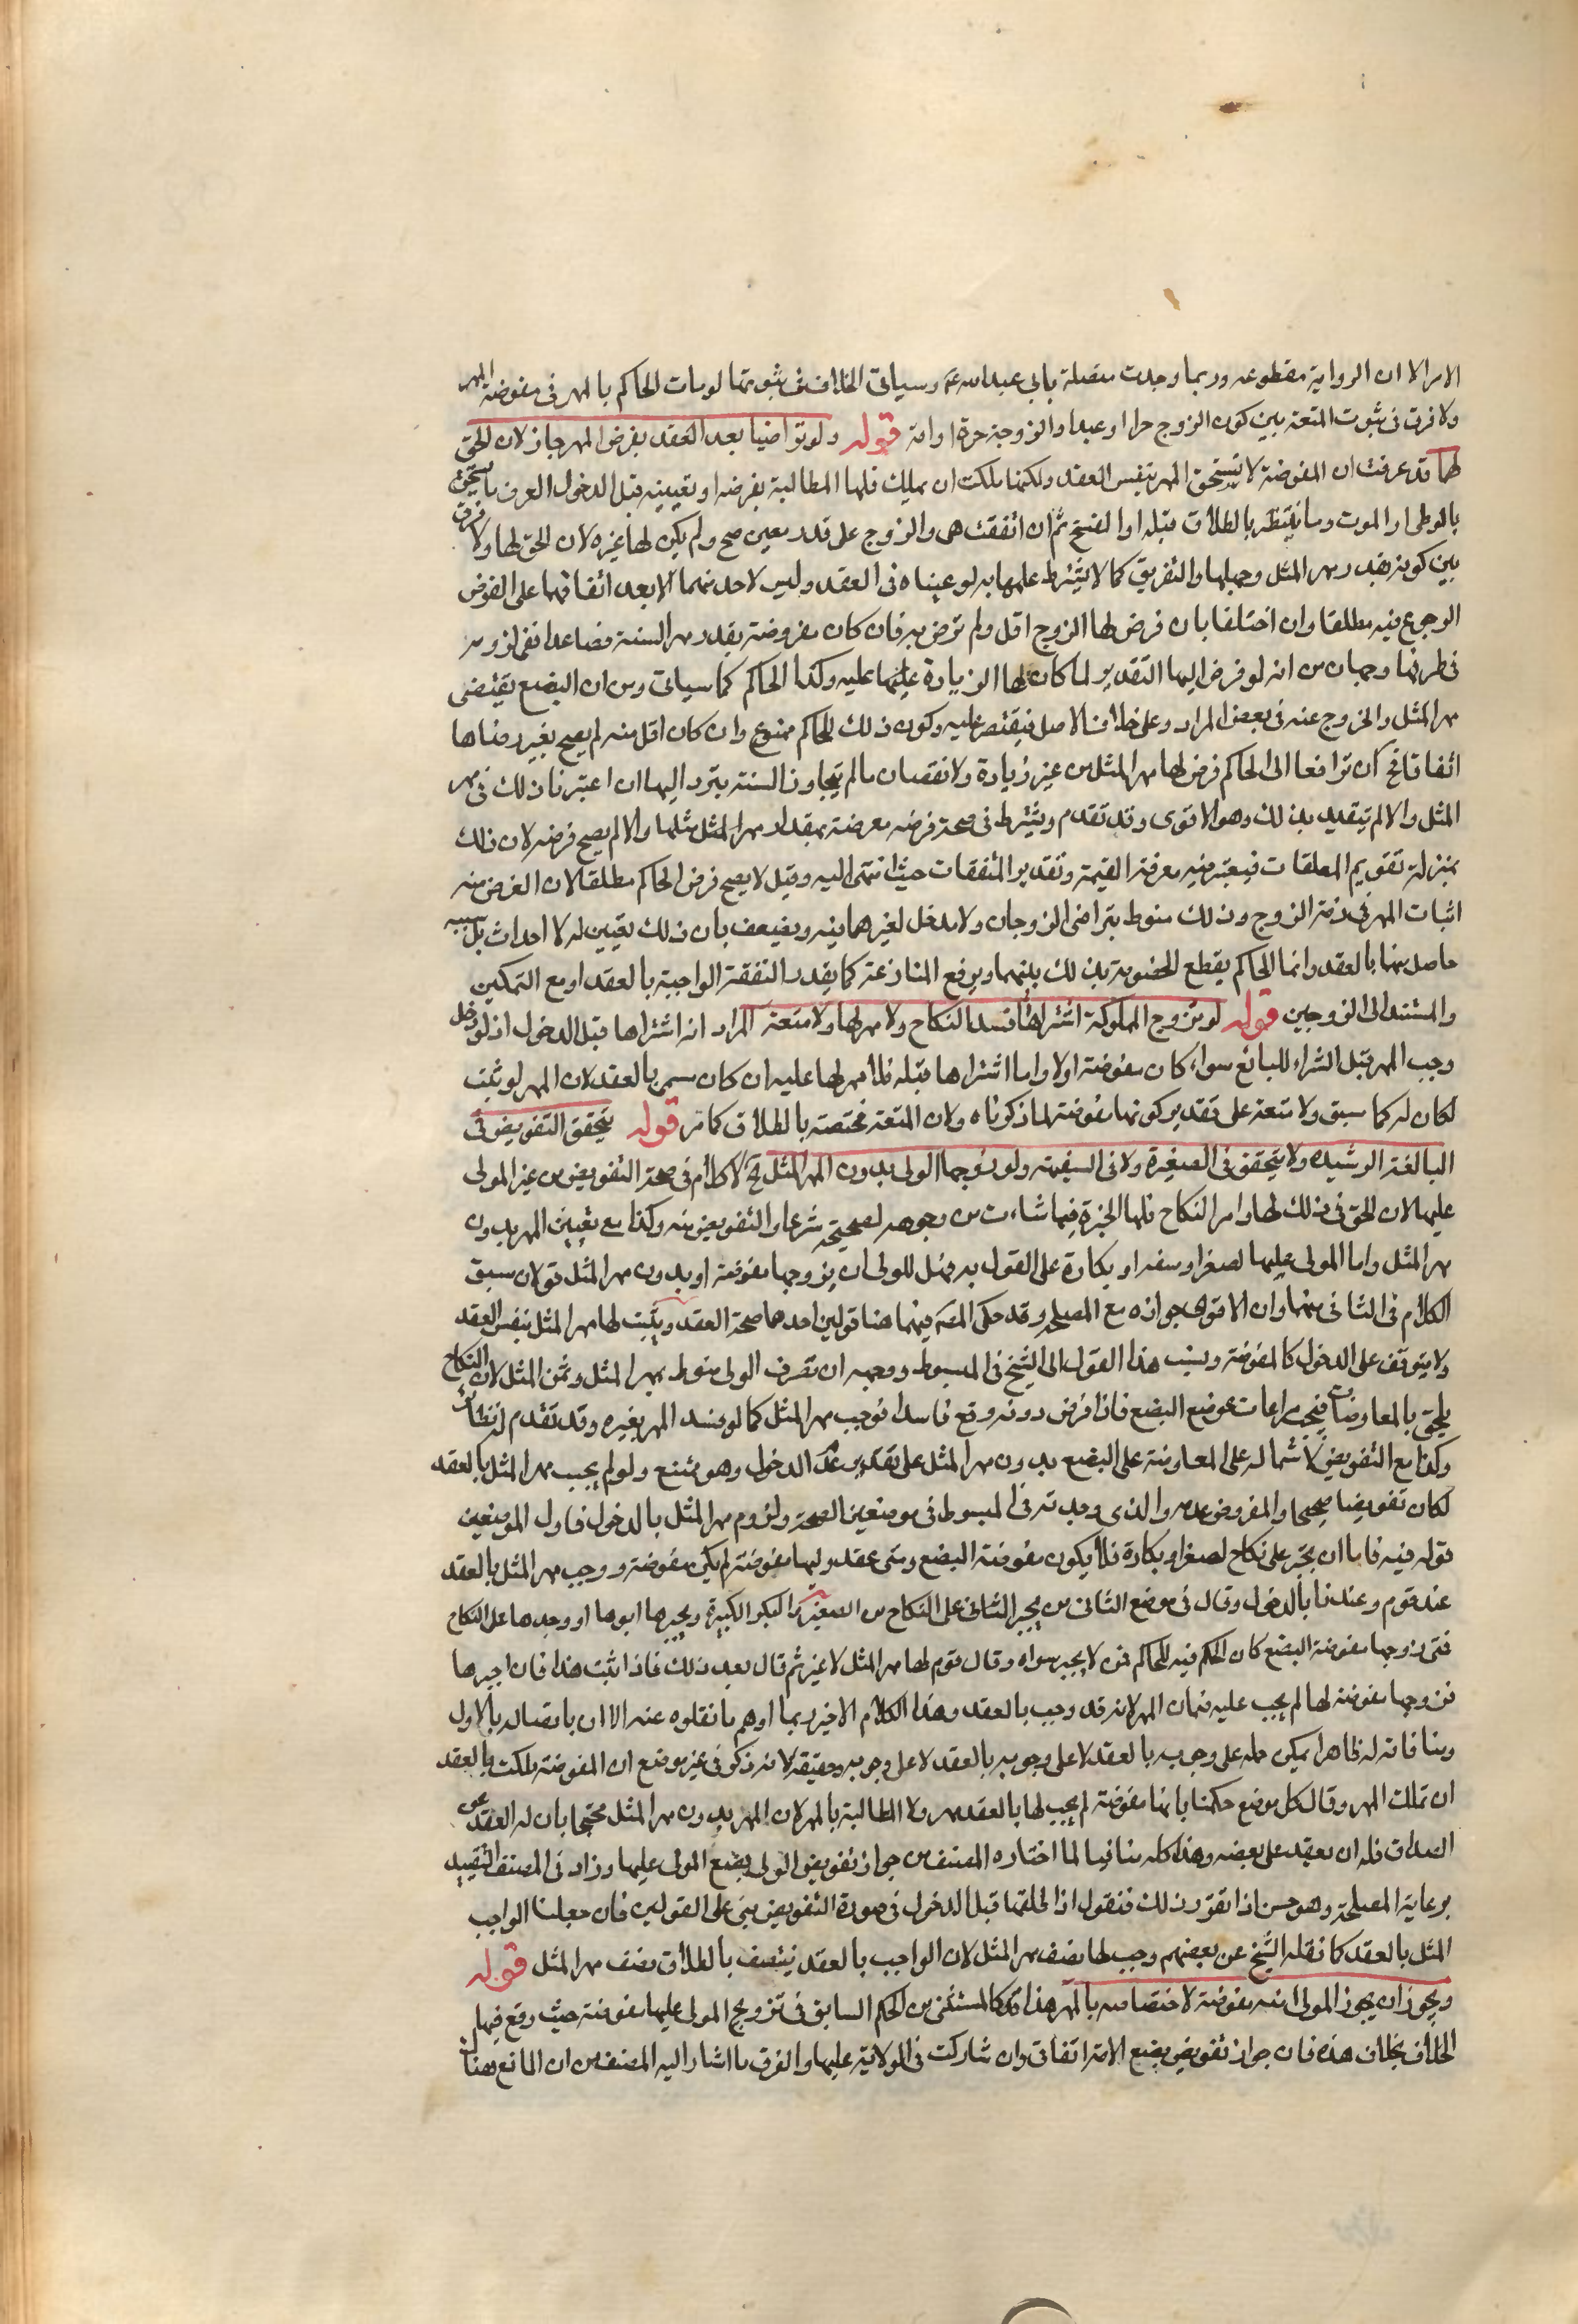 الامر الا ان الرواية مقطوعه وربما وجدت متصلة بابي عبد الله ع وسياتى الخلاف فى ثبوتها لو مات الحاكم بالمهر فى مفوضة المهر
ولا فرق فى ثبوت المتعة بين كون الزوج حرا او عبدا والزوجة حرة او امة قوله ولو تراضيا بعد العقد بفرض المهر جاز لان الحق
لهما قد عرفت ان المفوضة لا تستحق المهر بنفس العقد ولكنها ملكت ان تملك فلها المطالبة بفرضه او تعيينه قبل الدخول لتعرف ما تستحق
بالوطى او الموت وما يتشطر بالطلاق قبله او الفسخ ثم ان اتفقت هى والزوج على قدر معين صح ولم يكن لها غيره لان الحق لها ولا فرق
بين كونه بقدر مهر المثل وجهلها والتفريق كما لا يشترط علمهما به لو عيناه فى العقد وليس لاحد منهما الا بعد اتفاقهما على الفرض
الرجوع فيه مطلقا وان اختلفا بان فرض لها الزوج اقل ولم ترض به فان كان مفروضة بقدر مهر السنة فصاعدا ففى لزومه
فى طرفها وجهان من انه لو فرض اليها التقدير لما كان لها الزيادة عليها عليه وكذا الحاكم كما سياتى ومن ان البضع يقتضى
مهر المثل والخروج عنه فى بعض الموارد وعلى خلاف الاصل فيقتصر عليه وكون ذلك للحاكم ممنوع وان كان اقل منه لم يصح بغير رضاها
اتفاقا فح ان ترافعا الى الحاكم فرض لها مهر المثل من غير زيادة ولا نقصان ما لم يتجاوز السنة فيرد اليها ان اعتبرنا ذلك فى مهر
المثل والا لم يتقيد بذلك وهو الاقوى وقد تقدم ويشترط فى صحة فرضه معرفته بمقدار مهر المثل مثلها والا لم يصح فرضه لان ذلك
بمنزلة تقويم المعلقات فيعتبر فيه معرفة القيمة وتقدير النفقات حيث انتهى اليه وقيل لا يصح فرض الحاكم مطلقا لان الغرض منه
اثبات المهر فى ذمة الزوج وذلك منوط بتراضى الزوجان ولا مدخل لغيرهما فيه ويضعف بان ذلك تعيين له لا احداث بل سببه
حاصل منها بالعقد وانما الحاكم يقطع الخصومة بذلك بينهما ويرفع المنازعة كما يقدر النفقة الواجبة بالعقد او مع التمكين
والمستند الى الزوجين قوله لو تزوج المملوكة اشتراها فسد النكاح ولا مهر لها ولا متعة المراد انه اشتراها قبل الدخول اذ لو دخل
وجب المهر قبل الشراء للبائع سواء كان مفوضة اولا واما اشتراها قبله فلا مهر لها عليه ان كان سمى بالعقد لان المهر لو ثبت
لكان له كما سبق ولا متعة على تقدير كونها مفوضة لما ذكرناه ولان المتعة مختصة بالطلاق كما مر قوله يتحقق التفويض فى
البالغة الرشيده ولا يتحقق فى الصغيرة ولا فى السفيهة ولو زوجها الولى بدون المهر المثل الخ لا كلام فى صحة التفويض من غير المولى
عليها لان الحق فى ذلك لها وامر النكاح فلها الخيرة فيما شاءت من وجوهه الصحيحه شرعا والتفويض منه وكذا مع تعيين المهر بدون
مهر المثل واما المولى عليها لصغر او سفه او بكارة على القول به فهل للولى ان يزوجها مفوضة او بدون مهر المثل قولان سبق
الكلام فى الثانى منهما وان الاقوى جوازه مع المصلحه وقد حكى المصـ فيهما هنا قولين احدهما صحة العقد ويثبت لها مهر المثل بنفس العقد
ولا يتوقف على الدخول كالمفوضة وينسب هذا القول الى الشيخ فى المبسوط ووجهه ان تصرف الولى منوط بمهر المثل وثمن المثل لان النكاح
يلحق بالمعاوضات فيجب مراعات عوض البضع فاذا فرض دونه وقع فاسدا فوجب مهر المثل كما لو فسد المهر بغيره وقد تقدم نظائره
وكذا مع التفويض لاشتماله على المعاوضة على البضع بدون مهر المثل على تقدير عدم الدخول وهو ممتنع ولو لم يجب مهر المثل بالعقد
لكان تفويضا صحيحا والمفروض عدمه والذى وجدته فى المبسوط فى موضعين الصحة ولزوم مهر المثل بالدخول فاول الموضعين
قوله فيه فاما ان يجبر على نكاح لصغر او بكارة فلا يكون مفوضة البضع ومتى عقد وليها مفوضة لم يكن مفوضة ووجب مهر المثل بالعقد
عند قوم وعندنا بالدخول وقال فى موضع الثانى من يجبر الثانى على النكاح من الصغير والبكر الكبيرة ويجبرها ابوها او وجدها على النكاح
فمتى زوجها مفوضة البضع كان الحكم فيه للحاكم فمن لا يجبر سواه وقال قوم لها مهر المثل لا غير ثم قال بعد ذلك فاذا ثبت هذا فان اجبرها
فزوجها مفوضة لها لم يجب عليه ضمان المهر لانه قد وجب بالعقد وهذا الكلام الاخير ربما اوهم ما نقلوه عنه الا ان باتصاله بالاول
ومنافاته له ظاهرا يمكن حمله على وجوبه بالعقد لا على وجوبه بالعقد لا على وجوبه حقيقة لانه ذكر فى غير موضع ان المفوضة ملكت بالعقد
ان تملك المهر وقال كل موضع حكمنا بانها مفوضة لم يجب لها بالعقد مهر ولا المطالبة بالمهر لان المهر بدون مهر المثل محتجا بان له العفو عن
الصداق فله ان يعقد على بعضه وهذا كله منافيا لما اختاره المصنف من جواز تفويض الولى بضع المولى عليها وزاد فى المصنف التقييد
برعاية المصلحة وهو حسن اذا تقرر ذلك فنقول اذا طلقها قبل الدخول فى صورة التفويض بنى على القولين فان جعلنا الواجب
المثل بالعقد كما نقله الشيخ عن بعضهم وجب لها نصف مهر المثل لان الواجب بالعقد ينتصف بالطلاق نصف مهر المثل قوله
ويجوز ان يجوز المولى امته مفوضة لاختصاصه بالمهر هذا كالمستثنى من الحكم السابق فى تزويج المولى عليها مفوضة حيث وقع فيها
الخلاف بخلاف هذه فان جواز تفويض بضع الامة اتفاقى وان شاركت فى الولاية عليها والفرق ما اشار اليه المصنف من ان المانع هناك